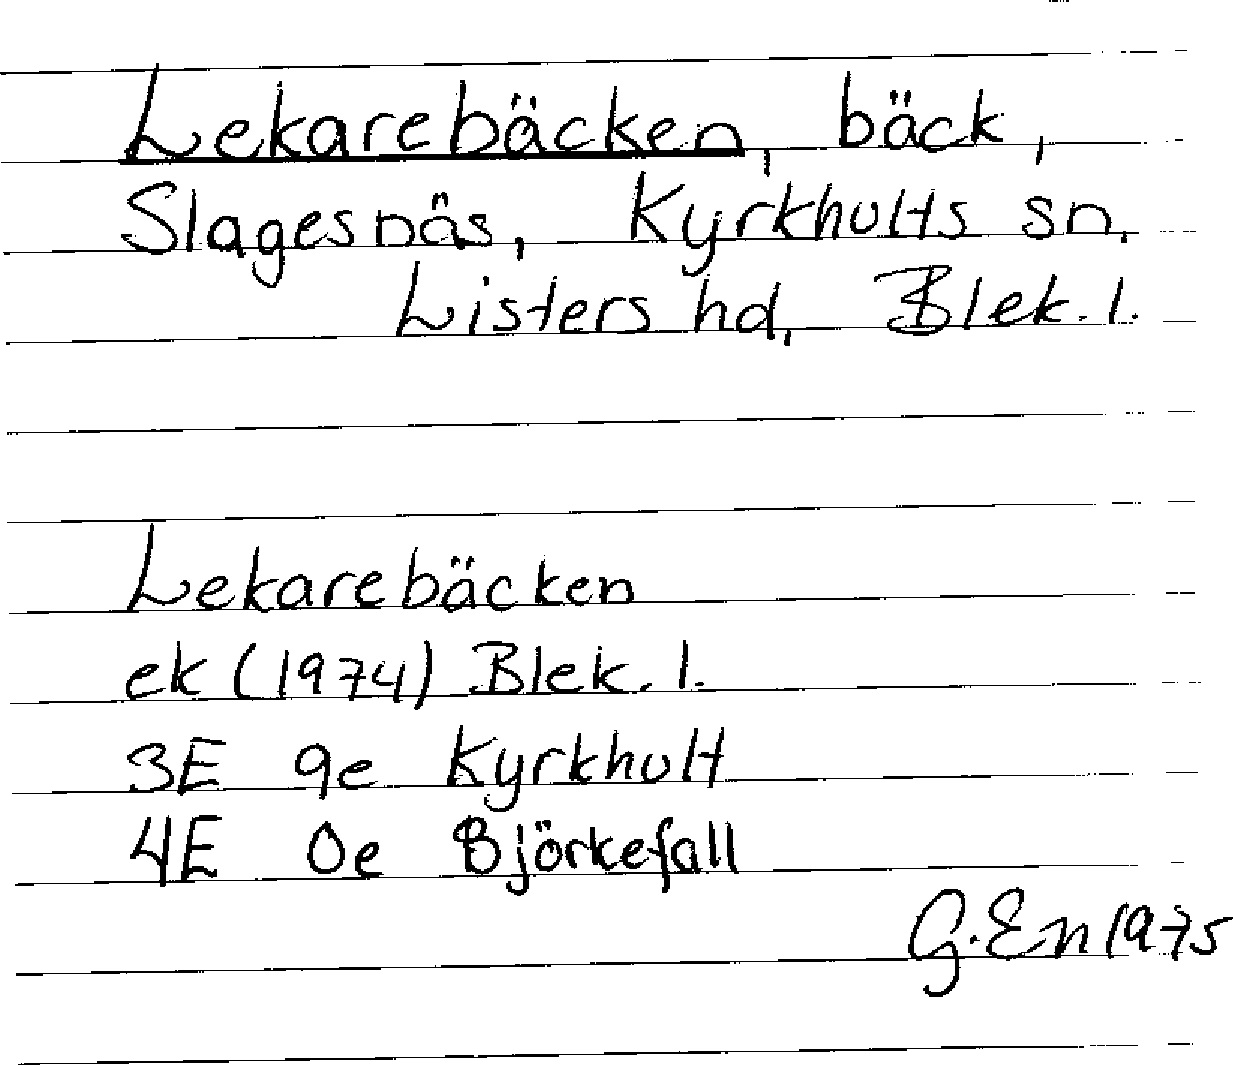 Lekarebäcken, bäck,
Slagesnäs, Kyrkhults sn,
Listers hd, Blek. l.
Lekarebäcken
ek (1974) Blek. l.
3E 9e Kyrkhult
4E 0e Björkefall
G. En 1975